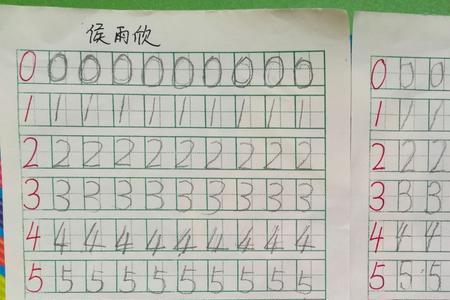 侯雨欣
0 0 0 0 0 0 0 0 0 0
1 1 1 1 1 1 1 1 1 1
2 2 2 2 2 2 2 2 2 2
3 3 3 3 3 3 3 3 3 3
4 4 4 4 4 4 4 4 4 4
5 5 5 5 5 5 5 5 5 5
0 0 0
1 1 1
2 2 2
3 3 3
4 4 4
5 5 5